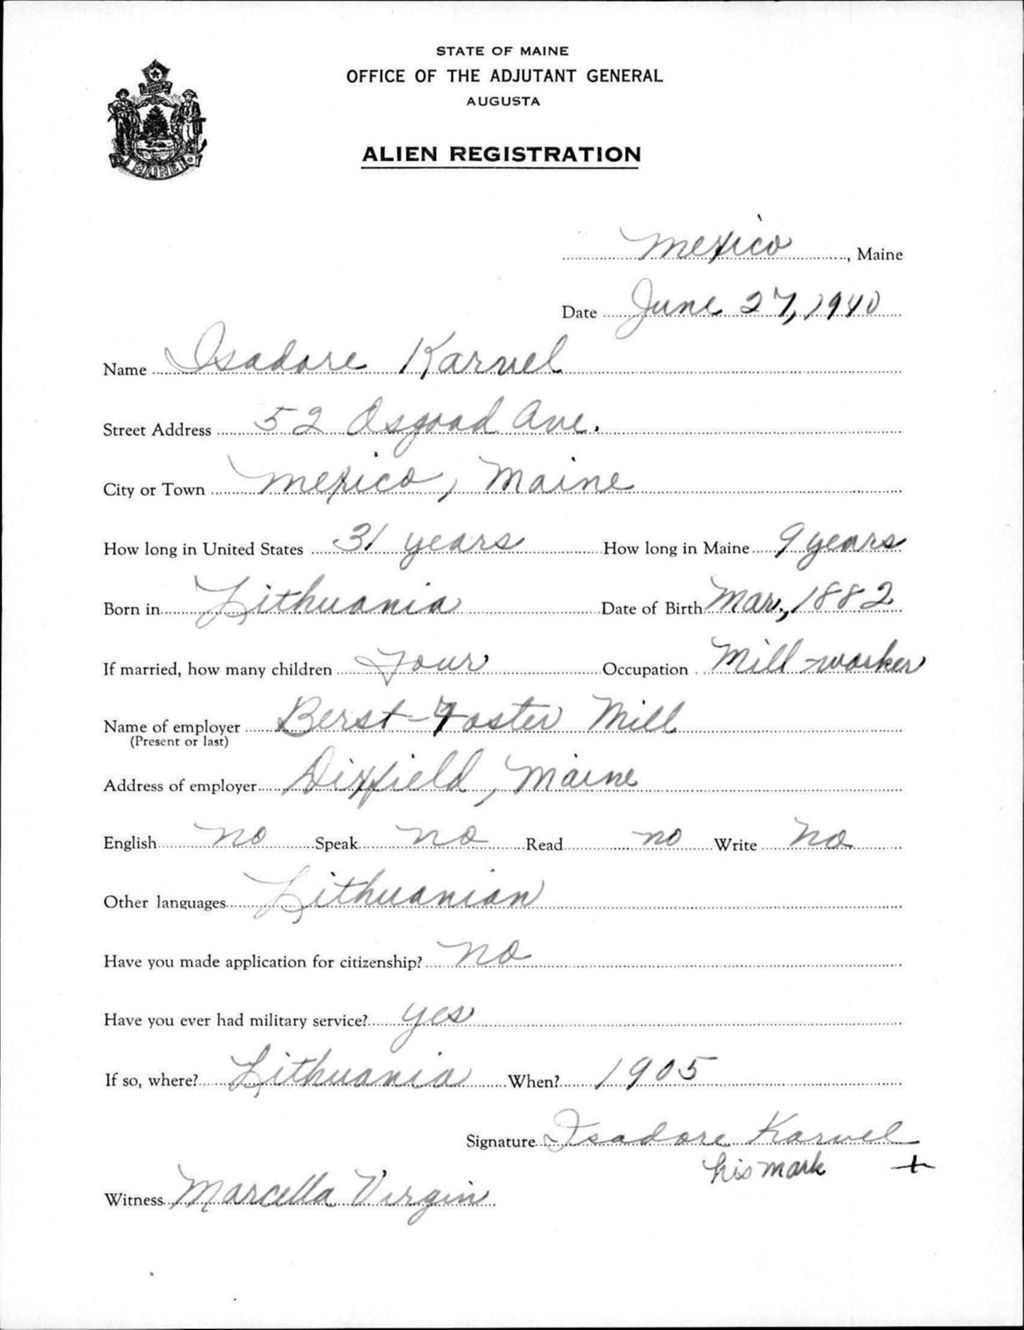 STATE OF MAINE
OFFICE OF THE ADJUTANT GENERAL
AUGUSTA
ALIEN REGISTRATION
MAINE
Mexico, Maine
Date June 27, 1940
Name Isadore Karvel
Street Address 52 Osgood Ave.
City or Town Mexico, Maine
How long in United States 31 years How long in Maine 9 years
Born in Lithuania Date of Birth Mar., 1882
If married, how many children Four Occupation Mill-worker
Name of employer Berst-Foster Mill
(Present or last)
Address of employer Dixfield, Maine
English no Speak no Read no Write no
Other languages Lithuanian
Have you made application for citizenship? no
Have you ever had military service? yes
If so, where? Lithuania When? 1905
Signature Isadore Karvel
his mark +
Witness Marcella Virgin